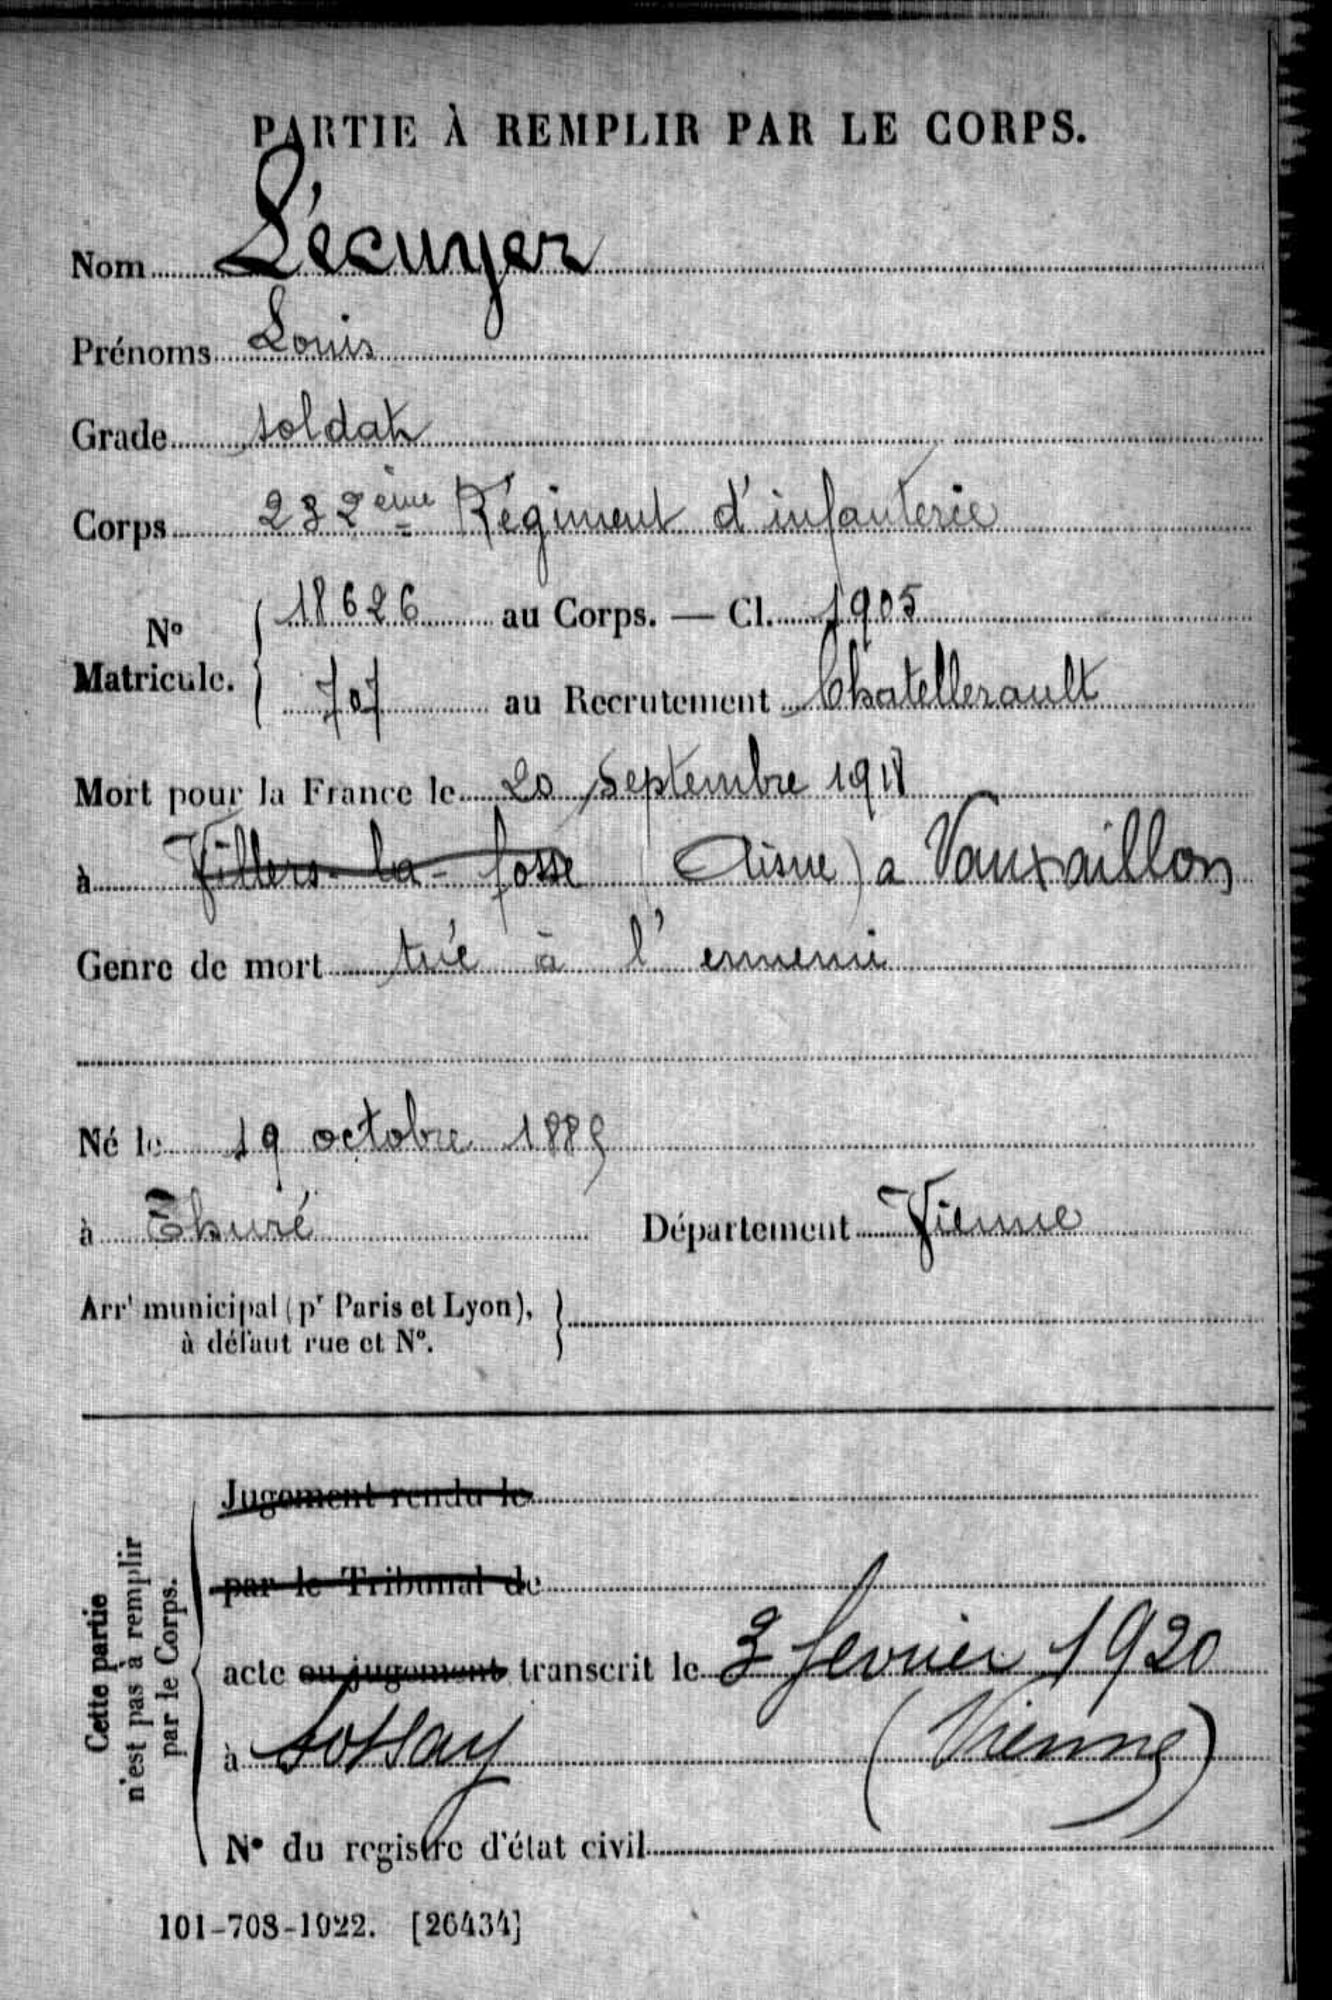 PARTIE À REMPLIR PAR LE CORPS.
Nom Lécuyer
Prénoms Louis
Grade soldat
Corps 232ème Régiment d'infanterie
N° Matricule. 18626 au Corps. — Cl. 1905
707 au Recrutement Chatellerault
Mort pour la France le 20 septembre 1918
à Villers-la-fosse (Aisne) a Vauxaillon
Genre de mort tué à l'ennemi
Né le 19 octobre 1885
à Thuré Département Vienne
Arrt municipal (pr Paris et Lyon),
à défaut rue et N°.
Cette partie
n'est pas à remplir
par le Corps.
Jugement rendu le
par le Tribunal de
acte ou jugement transcrit le 3 fevrier 1920
à Sossay (Vienne)
N° du registre d'état civil
101-708-1922. [26434]